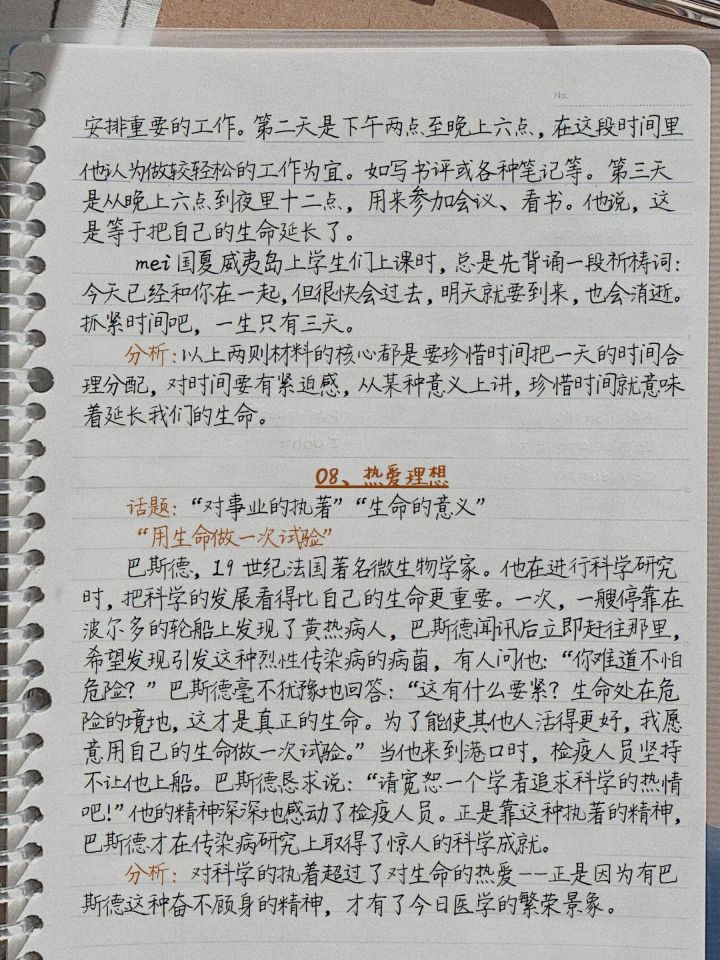 No.
安排重要的工作。第二天是下午两点至晚上六点，在这段时间里
他认为做较轻松的工作为宜。如写书评或各种笔记等。第三天
是从晚上六点到夜里十二点，用来参加会议、看书。他说，这
是等于把自己的生命延长了。
mei国夏威夷岛上学生们上课时，总是先背诵一段祈祷词：
今天已经和你在一起，但很快会过去，明天就要到来，也会消逝。
抓紧时间吧，一生只有三天。
分析：以上两则材料的核心都是要珍惜时间把一天的时间合
理分配，对时间要有紧迫感，从某种意义上讲，珍惜时间就意味
着延长我们的生命。
08、热爱理想
话题：“对事业的执著”“生命的意义”
“用生命做一次试验”
巴斯德，19世纪法国著名微生物学家。他在进行科学研究
时，把科学的发展看得比自己的生命更重要。一次，一艘停靠在
波尔多的轮船上发现了黄热病人，巴斯德闻讯后立即赶往那里，
希望发现引发这种烈性传染病的病菌，有人问他：“你难道不怕
危险？”巴斯德毫不犹豫地回答：“这有什么要紧？生命处在危
险的境地，这才是真正的生命。为了能使其他人活得更好，我愿
意用自己的生命做一次试验。”当他来到港口时，检疫人员坚持
不让他上船。巴斯德恳求说：“请宽恕一个学者追求科学的热情
吧！”他的精神深深地感动了检疫人员。正是靠这种执著的精神，
巴斯德才在传染病研究上取得了惊人的科学成就。
分析：对科学的执着超过了对生命的热爱——正是因为有巴
斯德这种奋不顾身的精神，才有了今日医学的繁荣景象。